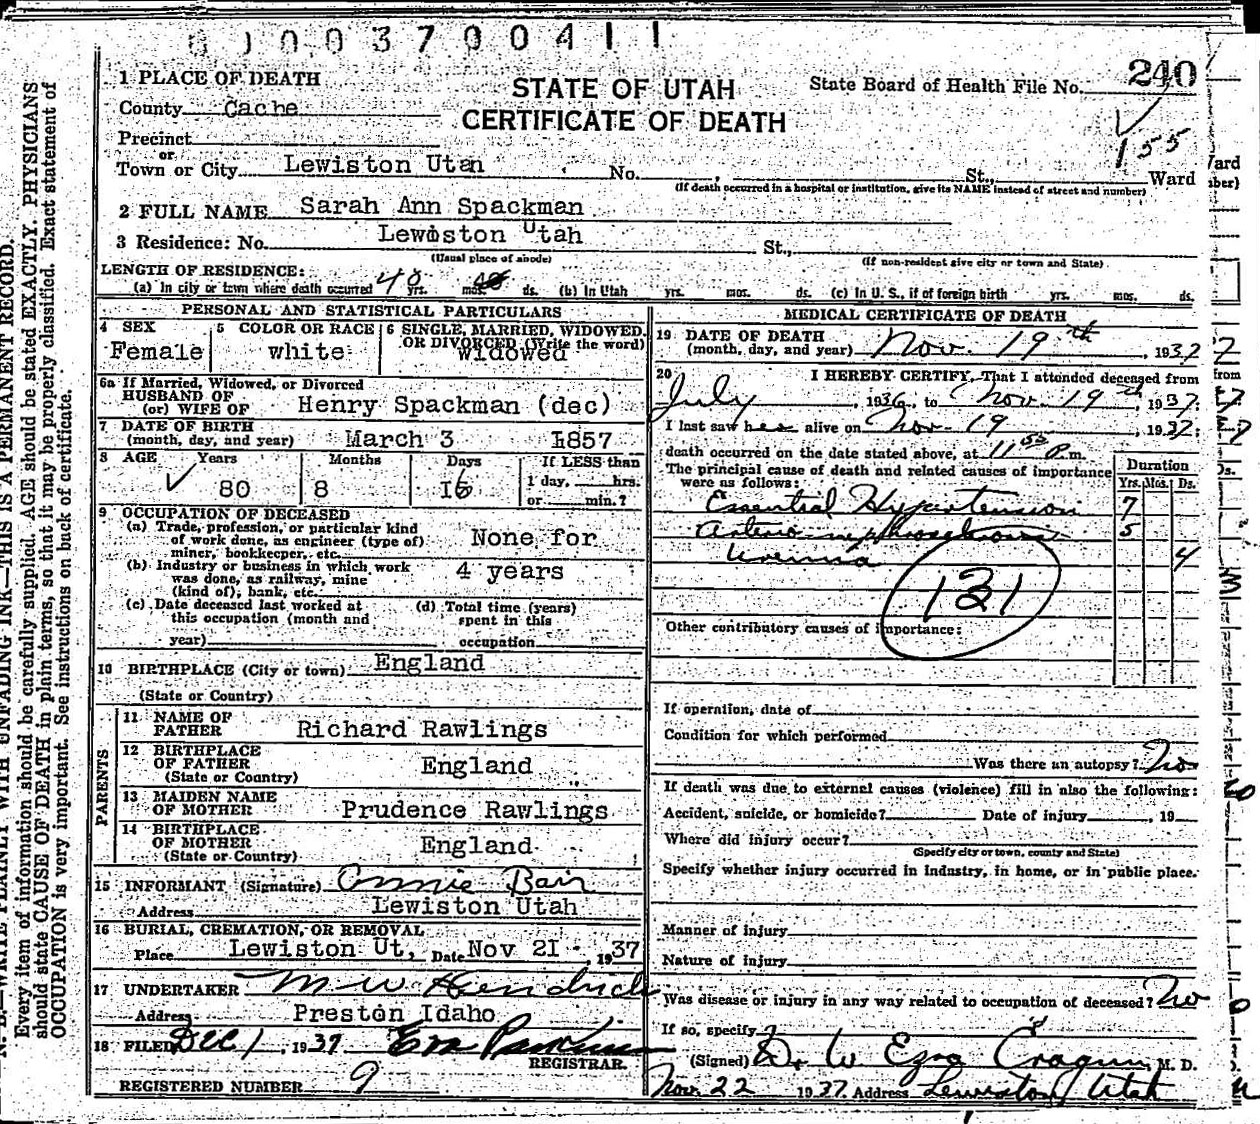 0 0 0 3 7 0 0 4 1 1
1 PLACE OF DEATH
County Cache
Precinct
or
Town or City Lewiston Utah No. , St., Ward
(If death occurred in a hospital or institution, give its NAME instead of street and number)
STATE OF UTAH
CERTIFICATE OF DEATH
State Board of Health File No. 240
155
2 FULL NAME Sarah Ann Spackman
3 Residence: No. Lewiston Utah St.,
(Usual place of abode) (If non-resident give city or town and State)
LENGTH OF RESIDENCE:
(a) In city or town where death occurred 40 yrs. mos. ds. (b) In Utah yrs. mos. ds. (c) In U. S., if of foreign birth yrs. mos. ds.
PERSONAL AND STATISTICAL PARTICULARS
4 SEX Female
5 COLOR OR RACE white
6 SINGLE, MARRIED, WIDOWED, OR DIVORCED (Write the word) widowed
6a If Married, Widowed, or Divorced
HUSBAND OF
(or) WIFE OF Henry Spackman (dec)
7 DATE OF BIRTH
(month, day, and year) March 3 1857
8 AGE Years Months Days If LESS than
80 8 16 1 day, hrs.
or min.?
9 OCCUPATION OF DECEASED
(a) Trade, profession, or particular kind
of work done, as engineer (type of)
miner, bookkeeper, etc. None for
(b) Industry or business in which work
was done, as railway, mine
(kind of), bank, etc. 4 years
(c) Date deceased last worked at
this occupation (month and
year)
(d) Total time (years)
spent in this
occupation
10 BIRTHPLACE (City or town) England
(State or Country)
PARENTS
11 NAME OF
FATHER Richard Rawlings
12 BIRTHPLACE
OF FATHER England
(State or Country)
13 MAIDEN NAME
OF MOTHER Prudence Rawlings
14 BIRTHPLACE
OF MOTHER England
(State or Country)
15 INFORMANT (Signature) Annie Bair
Address Lewiston Utah
16 BURIAL, CREMATION, OR REMOVAL
Place Lewiston Ut, Date Nov 21 , 1937
17 UNDERTAKER M W Hendricks
Address Preston Idaho
18 FILED Dec 1 , 1937 Eva Parkinson
REGISTRAR.
REGISTERED NUMBER 9
MEDICAL CERTIFICATE OF DEATH
19 DATE OF DEATH
(month, day, and year) Nov. 19th , 1937
20 I HEREBY CERTIFY, That I attended deceased from
July , 1936, to Nov. 19th, 1937;
I last saw her alive on Nov. 19 , 1937;
death occurred on the date stated above, at 11 P.m.
The principal cause of death and related causes of importance
were as follows:
Duration
Yrs. Mos. Ds.
Essential Hypertension 7
Arterio nephrosclerosis 5
Uremia 4
131
Other contributory causes of importance:
If operation, date of
Condition for which performed
Was there an autopsy? No
If death was due to external causes (violence) fill in also the following:
Accident, suicide, or homicide? Date of injury , 19
Where did injury occur?
(Specify city or town, county and State)
Specify whether injury occurred in industry, in home, or in public place.
Manner of injury
Nature of injury
Was disease or injury in any way related to occupation of deceased? No
If so, specify
(Signed) Dr. W Ezra Cragun, M. D.
Nov. 22 1937. Address Lewiston Utah
N. B.—WRITE PLAINLY WITH UNFADING INK—THIS IS A PERMANENT RECORD.
Every item of information should be carefully supplied. AGE should be stated EXACTLY. PHYSICIANS
should state CAUSE OF DEATH in plain terms, so that it may be properly classified. Exact statement of
OCCUPATION is very important. See instructions on back of certificate.